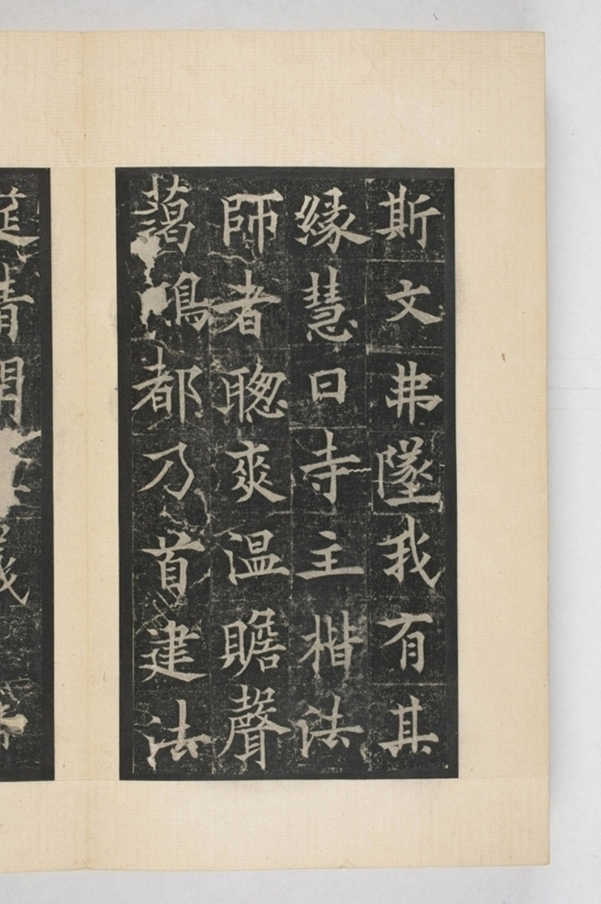 斯文弗墜我有其
緣慧日寺主楷法
師者聦爽温贍聲
藹鴻都乃首建法
筵清開